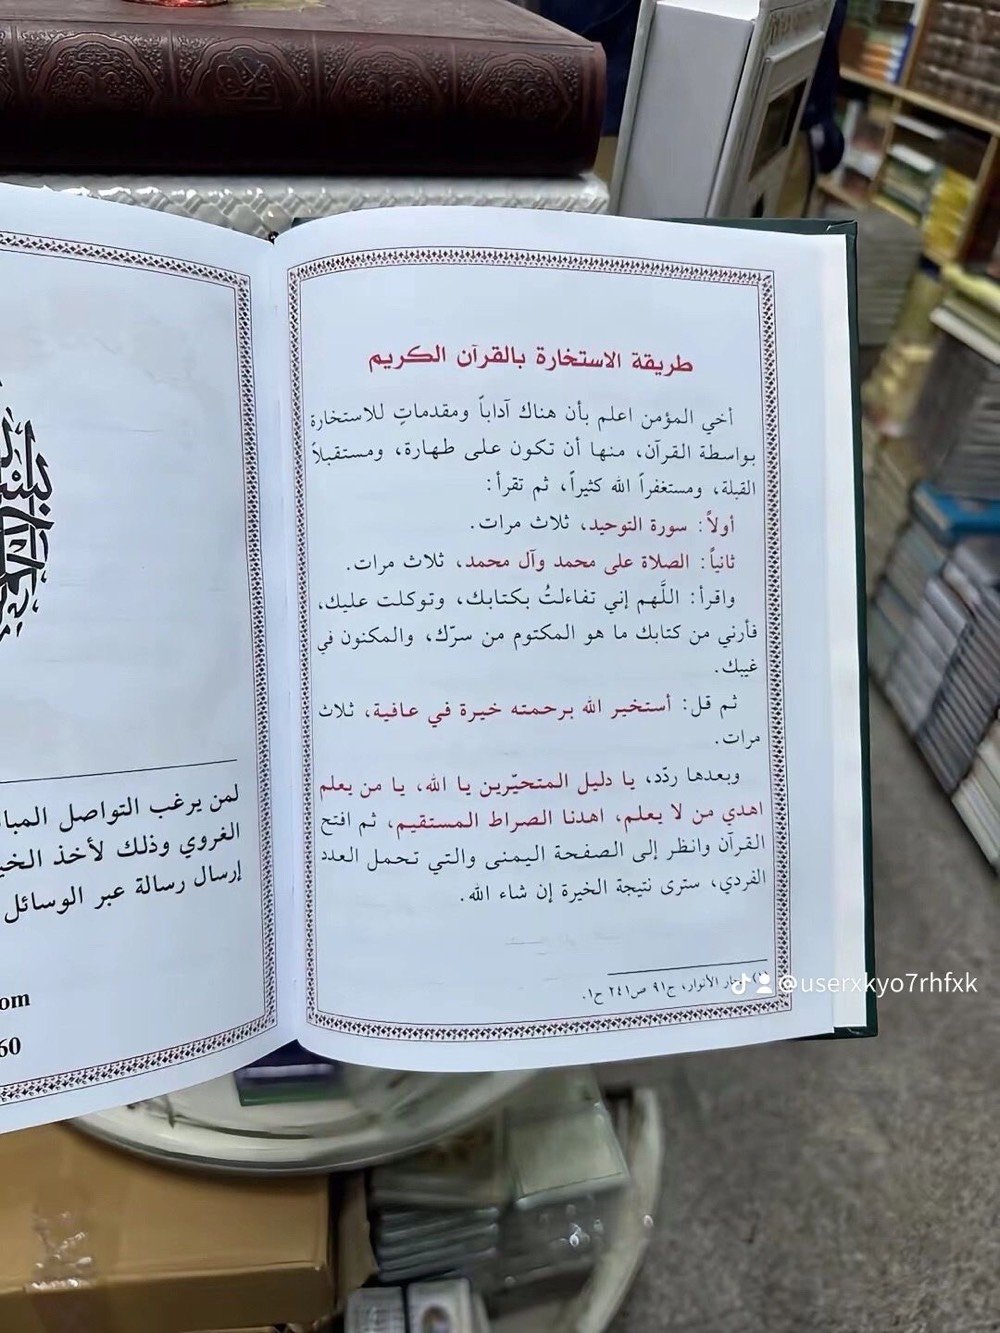 طريقة الاستخارة بالقرآن الكريم
أخي المؤمن اعلم بأن هناك آداباً ومقدماتٍ للاستخارة
بواسطة القرآن، منها أن تكون على طهارة، ومستقبلاً
القبلة، ومستغفراً الله كثيراً، ثم تقرأ:
أولاً: سورة التوحيد، ثلاث مرات.
ثانياً: الصلاة على محمد وآل محمد، ثلاث مرات.
واقرأ: اللَّهم إني تفاءلتُ بكتابك، وتوكلت عليك،
فأرني من كتابك ما هو المكتوم من سرّك، والمكنون في
غيبك.
ثم قل: أستخير الله برحمته خيرة في عافية، ثلاث
مرات.
وبعدها ردّد، يا دليل المتحيّرين يا الله، يا من يعلم
اهدي من لا يعلم، اهدنا الصراط المستقيم، ثم افتح
القرآن وانظر إلى الصفحة اليمنى والتي تحمل العدد
الفردي، سترى نتيجة الخيرة إن شاء الله.
الأنوار، ج٩١ ص٢٤١ ح١.
@userxkyo7rhfxk
لمن يرغب التواصل
الغروي وذلك لأخذ
إرسال رسالة عبر الوسائل
om
60